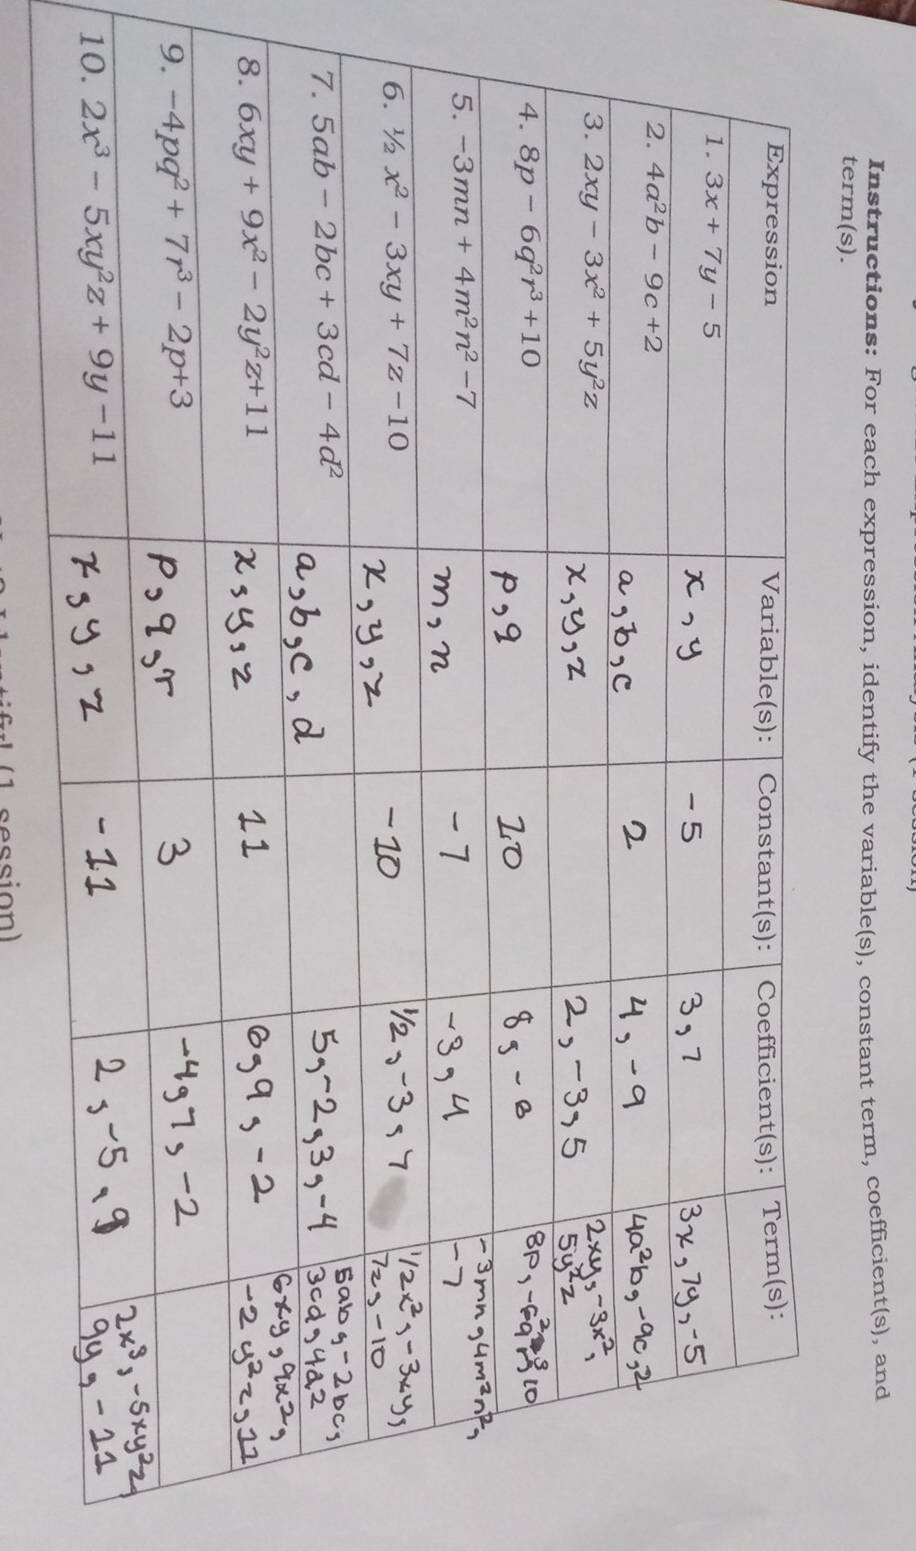 Instructions: For each expression, identify the variable(s), constant term, coefficient(s), and
term(s).
Expression Variable(s): Constant(s): Coefficient(s): Term(s):
1. 3x + 7y − 5 x, y -5 3, 7 3x, 7y, -5
2. 4a²b − 9c +2 a, b, c 2 4, -9 4a²b, -9c, 2
3. 2xy − 3x² + 5y²z x, y, z 2, -3, 5 2xy, -3x²,
5y²z
4. 8p − 6q²r³ +10 p, q 10 8, -6 8p, -6q²r³, 10
5. −3mn + 4m²n² −7 m, n -7 -3, 4 -3mn, 4m²n²,
-7
6. ½ x² − 3xy + 7z −10 x, y, z -10 1/2, -3, 7 1/2x², -3xy,
7z, -10
7. 5ab − 2bc + 3cd − 4d² a, b, c, d 5, -2, 3, -4 5ab, -2bc,
3cd, 4d²
8. 6xy + 9x² − 2y²z+11 x, y, z 11 6, 9, -2 6xy, 9x2,
-2y²z, 11
9. −4pq² + 7r³ − 2p+3 p, q, r 3 -4, 7, -2
10. 2x³ − 5xy²z + 9y −11 x, y, z -11 2, -5, 9 2x³, -5xy²z,
9y, -11
(1 session)